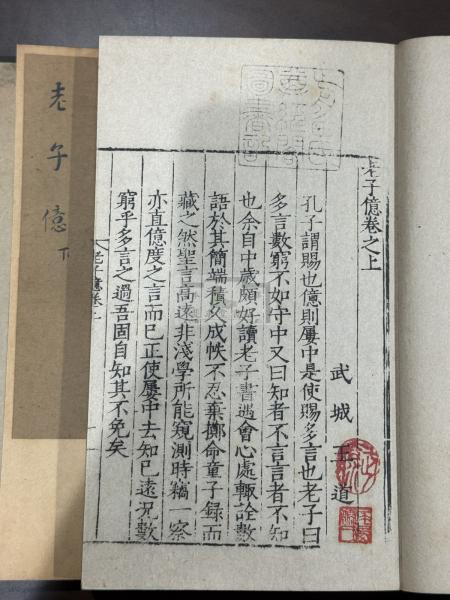 老子億卷之上
武城王道
孔子謂賜也億則屢中是使賜多言也老子曰
多言數窮不如守中又曰知者不言言者不知
也余自中歲頗好讀老子書遇會心處輙詮數
語於其簡端積久成帙不忍棄擲命童子録而
藏之然聖言高遠非淺學所能窺測時竊一察
亦直億度之言而已正使屢中去知已遠况數
窮乎多言之過吾固自知其不免矣
老子億卷上
老子億 下